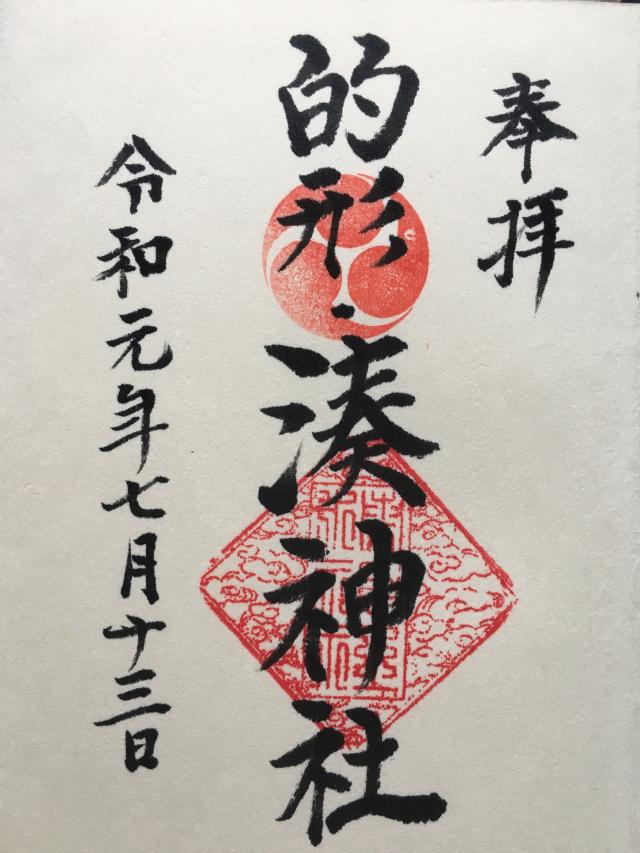 奉拝
的形・湊神社
令和元年七月十三日